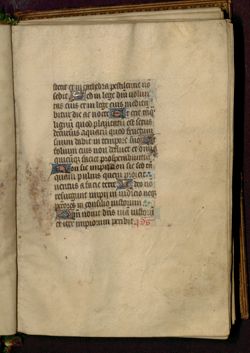 stetit et in cathedra pestilentie nō
sedit Sed in lege dni volun
tas eius et in lege eius medita
bitur die ac nocte Et erit
lignum quod plantatū est secus
decursus aquarū quod fructum
suum dabit in tempore suo Et
folium eius non defluet et oīa
quecūq; faciet prosperabuntur
Non sic impii non sic sed tā
quam puluis quem proicit
uentus a facie terre Ideo nō
resurgunt impii in iudicio neqz
peccōres in consilio iustorum
Qm nouit dns uiā iustorū
et iter impiorum peribit